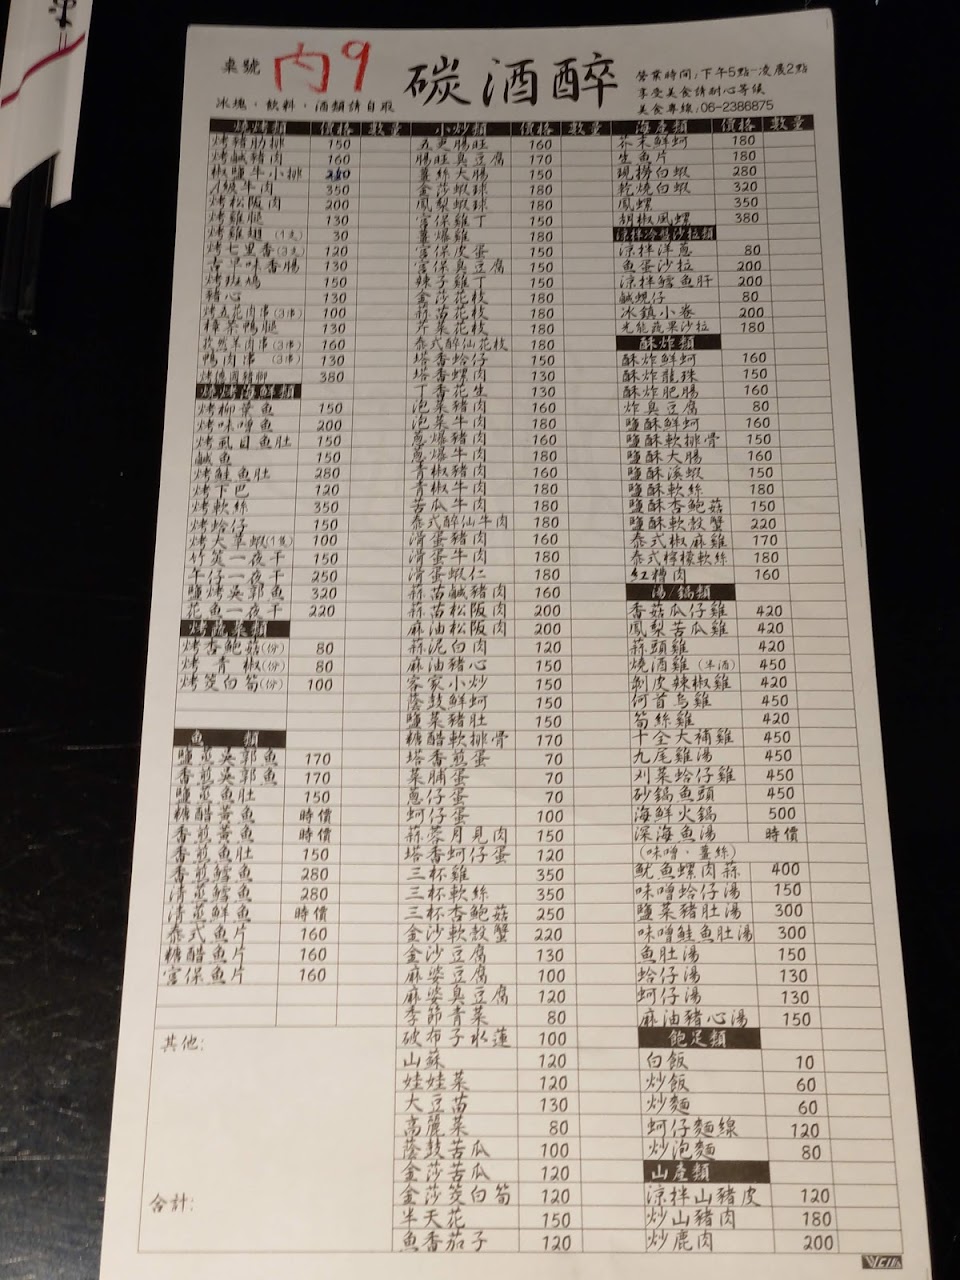 桌號 內9
碳酒醉
冰塊．飲料．酒類請自取
營業時間:下午5點-凌晨2點
享受美食請耐心等候
美食專線:06-2386875
燒烤類 價格 數量
烤豬肋排 150
烤鹹豬肉 160
椒鹽牛小排
A級牛肉 350
烤松阪肉 200
烤雞腿 130
烤雞翅(1支) 30
烤七里香(3支) 120
古早味香腸 130
烤斑鳩 150
豬心 130
烤五花肉串(3串) 100
樟茶鴨腿 130
孜然羊肉串(3串) 160
鴨肉串(3串) 130
烤德國豬腳 380
燒烤海鮮類
烤柳葉魚 150
烤味噌魚 200
烤虱目魚肚 150
鹹魚 150
烤鮭魚肚 280
烤下巴 120
烤軟絲 350
烤蛤仔 150
烤大草蝦(1隻) 100
竹筴一夜干 150
午仔一夜干 250
鹽烤吳郭魚 320
花魚一夜干 220
烤蔬菜類
烤杏鮑菇(份) 80
烤青椒(份) 80
烤筊白筍(份) 100
魚類
鹽蒸吳郭魚 170
香煎吳郭魚 170
鹽蒸魚肚 150
糖醋黃魚 時價
香煎黃魚 時價
香煎魚肚 150
香煎鱈魚 280
清蒸鱈魚 280
清蒸鮮魚 時價
泰式魚片 160
糖醋魚片 160
宮保魚片 160
其他:
合計:
小炒類 價格 數量
五更腸旺 160
腸旺臭豆腐 170
薑絲大腸 150
金莎蝦球 180
鳳梨蝦球 180
宮保雞丁 150
薑爆雞 180
宮保皮蛋 150
宮保臭豆腐 150
辣子雞丁 150
金莎花枝 180
蒜苗花枝 180
芹菜花枝 180
泰式醉仙花枝 180
塔香蛤仔 150
塔香螺肉 130
丁香花生 130
泡菜豬肉 160
泡菜牛肉 180
蔥爆豬肉 160
蔥爆牛肉 180
青椒豬肉 160
青椒牛肉 180
苦瓜牛肉 180
泰式醉仙牛肉 180
滑蛋豬肉 160
滑蛋牛肉 180
滑蛋蝦仁 180
蒜苗鹹豬肉 160
蒜苗松阪肉 200
麻油松阪肉 200
蒜泥白肉 120
麻油豬心 150
客家小炒 150
蔭鼓鮮蚵 150
鹽菜豬肚 150
糖醋軟排骨 170
塔香煎蛋 70
菜脯蛋 70
蔥仔蛋 70
蚵仔蛋 100
蒜蓉月見肉 150
塔香蚵仔蛋 120
三杯雞 350
三杯軟絲 350
三杯杏鮑菇 250
金沙軟殼蟹 220
金沙豆腐 130
麻婆豆腐 100
麻婆臭豆腐 120
季節青菜 80
破布子水蓮 100
山蘇 120
娃娃菜 120
大豆苗 130
高麗菜 80
蔭鼓苦瓜 100
金莎苦瓜 120
金莎筊白筍 120
半天花 150
魚香茄子 120
海產類 價格 數量
芥末鮮蚵 180
生魚片 180
現撈白蝦 280
乾燒白蝦 320
鳳螺 350
胡椒風螺 380
涼拌冷盤沙拉類
涼拌洋蔥 80
魚蛋沙拉 200
涼拌鱈魚肝 200
鹹蜆仔 80
冰鎮小卷 200
光能蔬果沙拉 180
酥炸類
酥炸鮮蚵 160
酥炸龍珠 150
酥炸肥腸 160
炸臭豆腐 80
鹽酥鮮蚵 160
鹽酥軟排骨 150
鹽酥大腸 160
鹽酥溪蝦 150
鹽酥軟絲 180
鹽酥杏鮑菇 150
鹽酥軟殼蟹 220
泰式椒麻雞 170
泰式檸檬軟絲 180
紅糟肉 160
湯/鍋類
香菇瓜仔雞 420
鳳梨苦瓜雞 420
蒜頭雞 420
燒酒雞(半酒) 450
剝皮辣椒雞 420
何首烏雞 450
筍絲雞 420
十全大補雞 450
九尾雞湯 450
刈菜蛤仔雞 450
砂鍋魚頭 450
海鮮火鍋 500
深海魚湯 時價
(味噌．薑絲)
魷魚螺肉蒜 400
味噌蛤仔湯 150
鹽菜豬肚湯 300
味噌鮭魚肚湯 300
魚肚湯 150
蛤仔湯 130
蚵仔湯 130
麻油豬心湯 150
飽足類
白飯 10
炒飯 60
炒麵 60
蚵仔麵線 120
炒泡麵 80
山產類
涼拌山豬皮 120
炒山豬肉 180
炒鹿肉 200